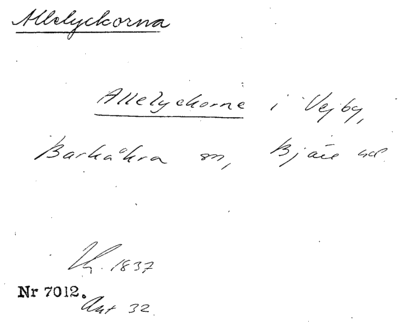 Allelyckorna
Allelyckorne i Vejby,
Barkåkra sn, Bjäre hd
1837
Nr 7012.
Akt 32